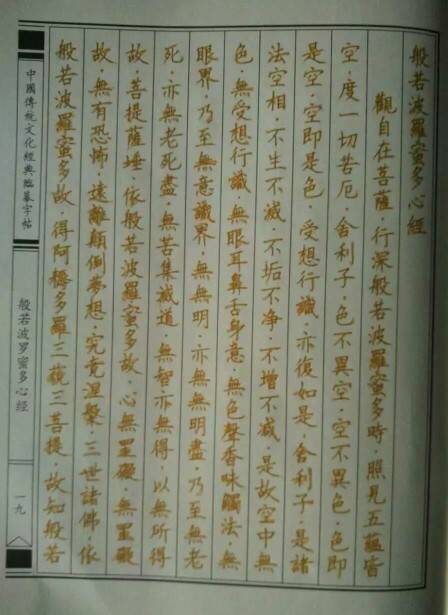 般若波羅蜜多心經
觀自在菩薩·行深般若波羅蜜多時·照見五蘊皆
空·度一切苦厄·舍利子·色不異空·空不異色·色即
是空·空即是色·受想行識·亦復如是·舍利子·是諸
法空相·不生不滅·不垢不净·不增不减·是故空中無
色·無受想行識·無眼耳鼻舌身意·無色聲香味觸法·無
眼界·乃至無意識界·無無明·亦無無明盡·乃至無老
死·亦無老死盡·無苦集滅道·無智亦無得·以無所得
故·菩提薩埵·依般若波羅蜜多故·心無罣礙·無罣礙
故·無有恐怖·遠離顛倒夢想·究竟涅槃·三世諸佛·依
般若波羅蜜多故·得阿耨多羅三藐三菩提·故知般若
中國傳統文化經典臨摹字帖
般若波罗蜜多心經
一九